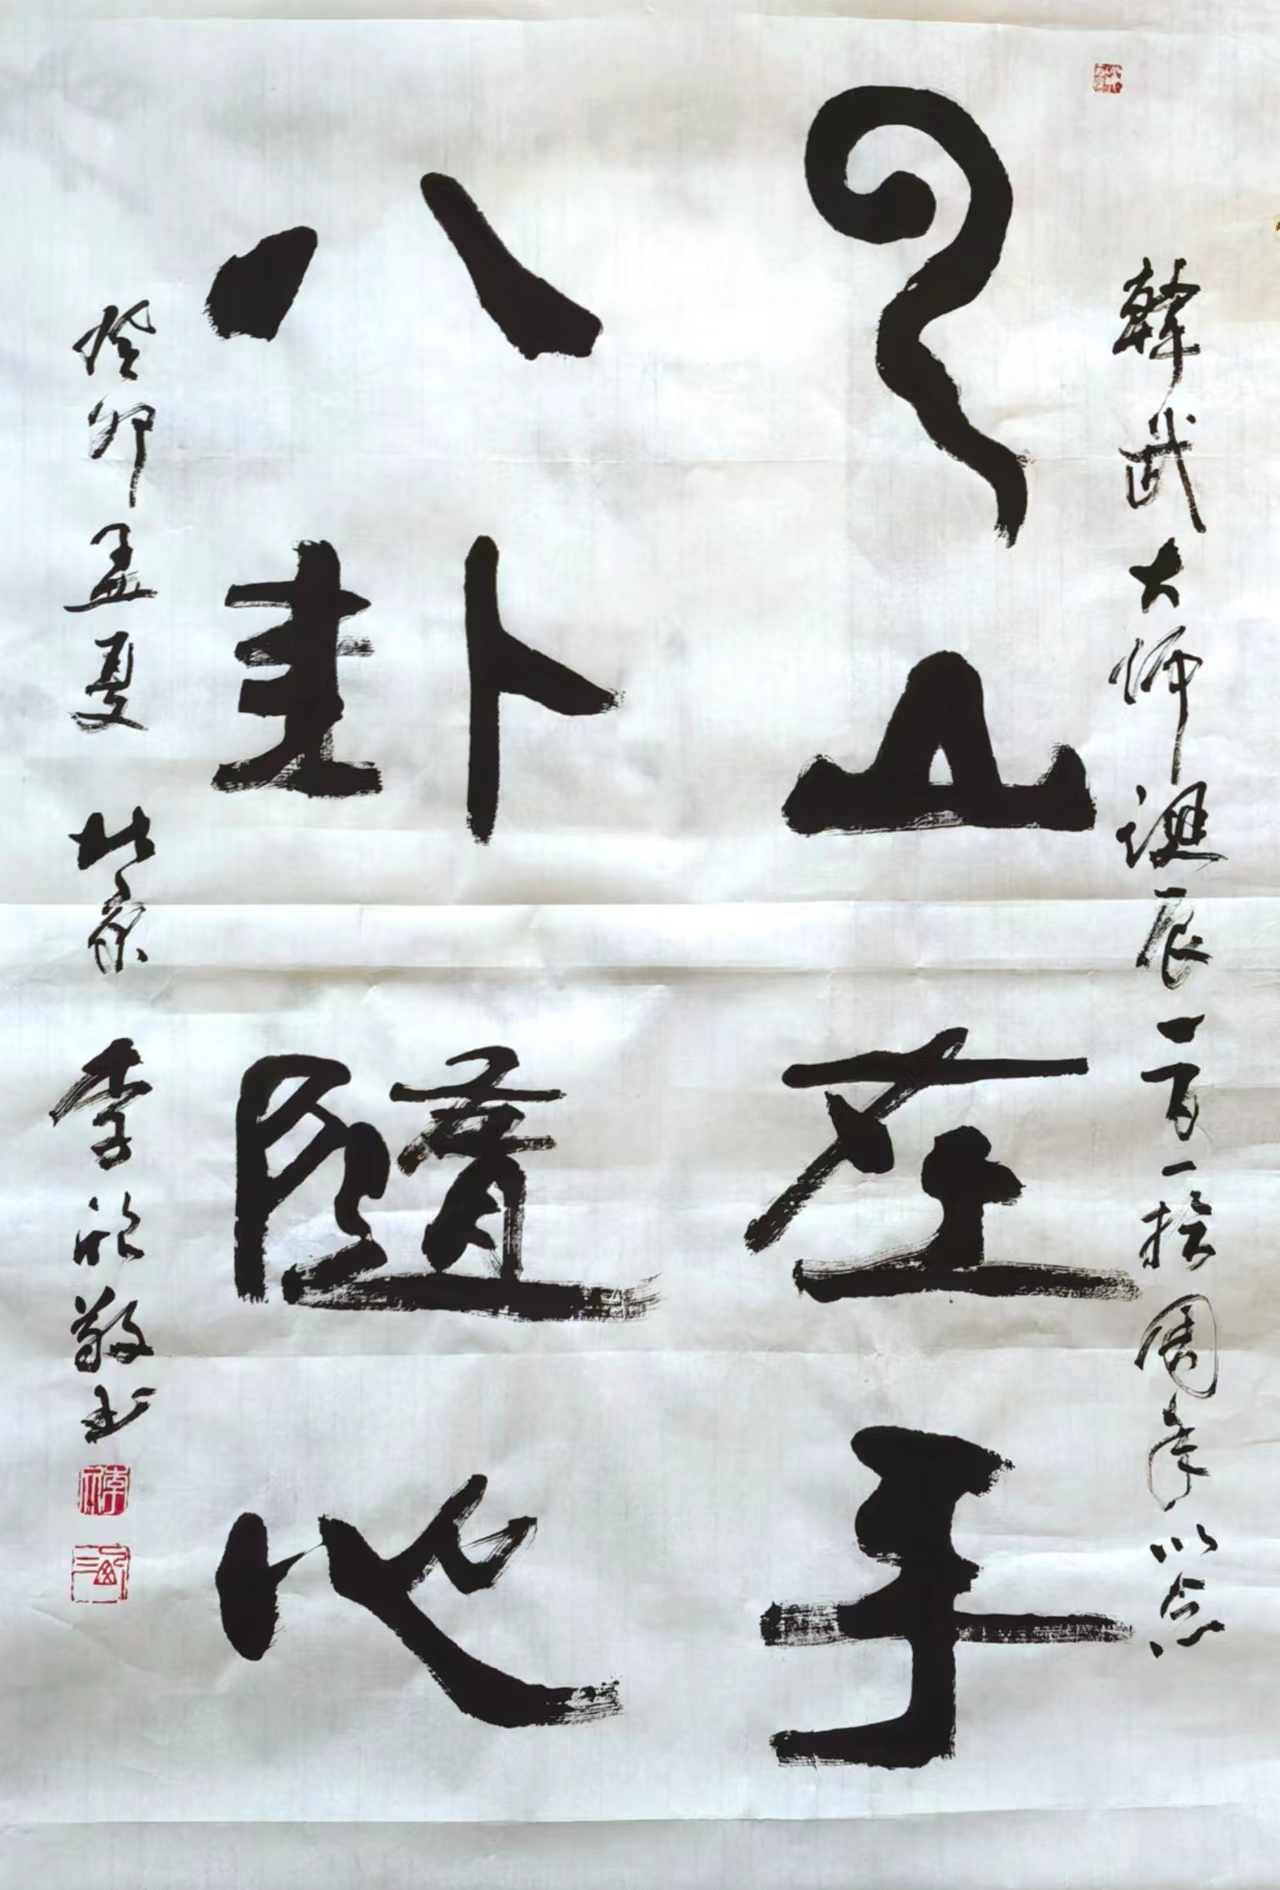 韓武大师誕辰一百一拾周年以念
山在手
八卦隨心
癸卯孟夏 北京 李敬书